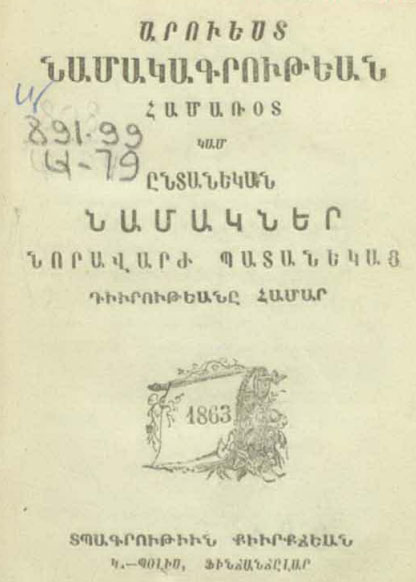 ԱՐՈՒԵՍՏ
ՆԱՄԱԿԱԳՐՈՒԹԵԱՆ
ՀԱՄԱՌՕՏ
ԿԱՄ
ԸՆՏԱՆԵԿԱՆ
ՆԱՄԱԿՆԵՐ
ՆՈՐԱՎԱՐԺ ՊԱՏԱՆԵԿԱՑ
ԴԻՒՐՈՒԹԵԱՆԸ ՀԱՄԱՐ
891.99
Ա-79
1863
ՏՊԱԳՐՈՒԹԻՒՆ ՔԻՒՐՔՃԵԱՆ
Կ.—ՊՕԼԻՍ, ՖԻՆՃԱՆՃԸԼԱՐ